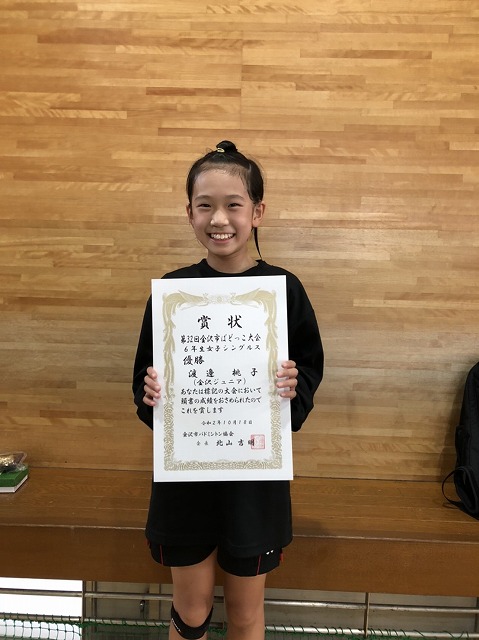 賞状
第32回金沢市ばどっこ大会
6年生女子シングルス
優勝
渡邉 桃子
(金沢ジュニア)
あなたは標記の大会において
頭書の成績をおさめられたので
これを賞します
令和2年10月18日
金沢市バドミントン協会
会長 北山吉明